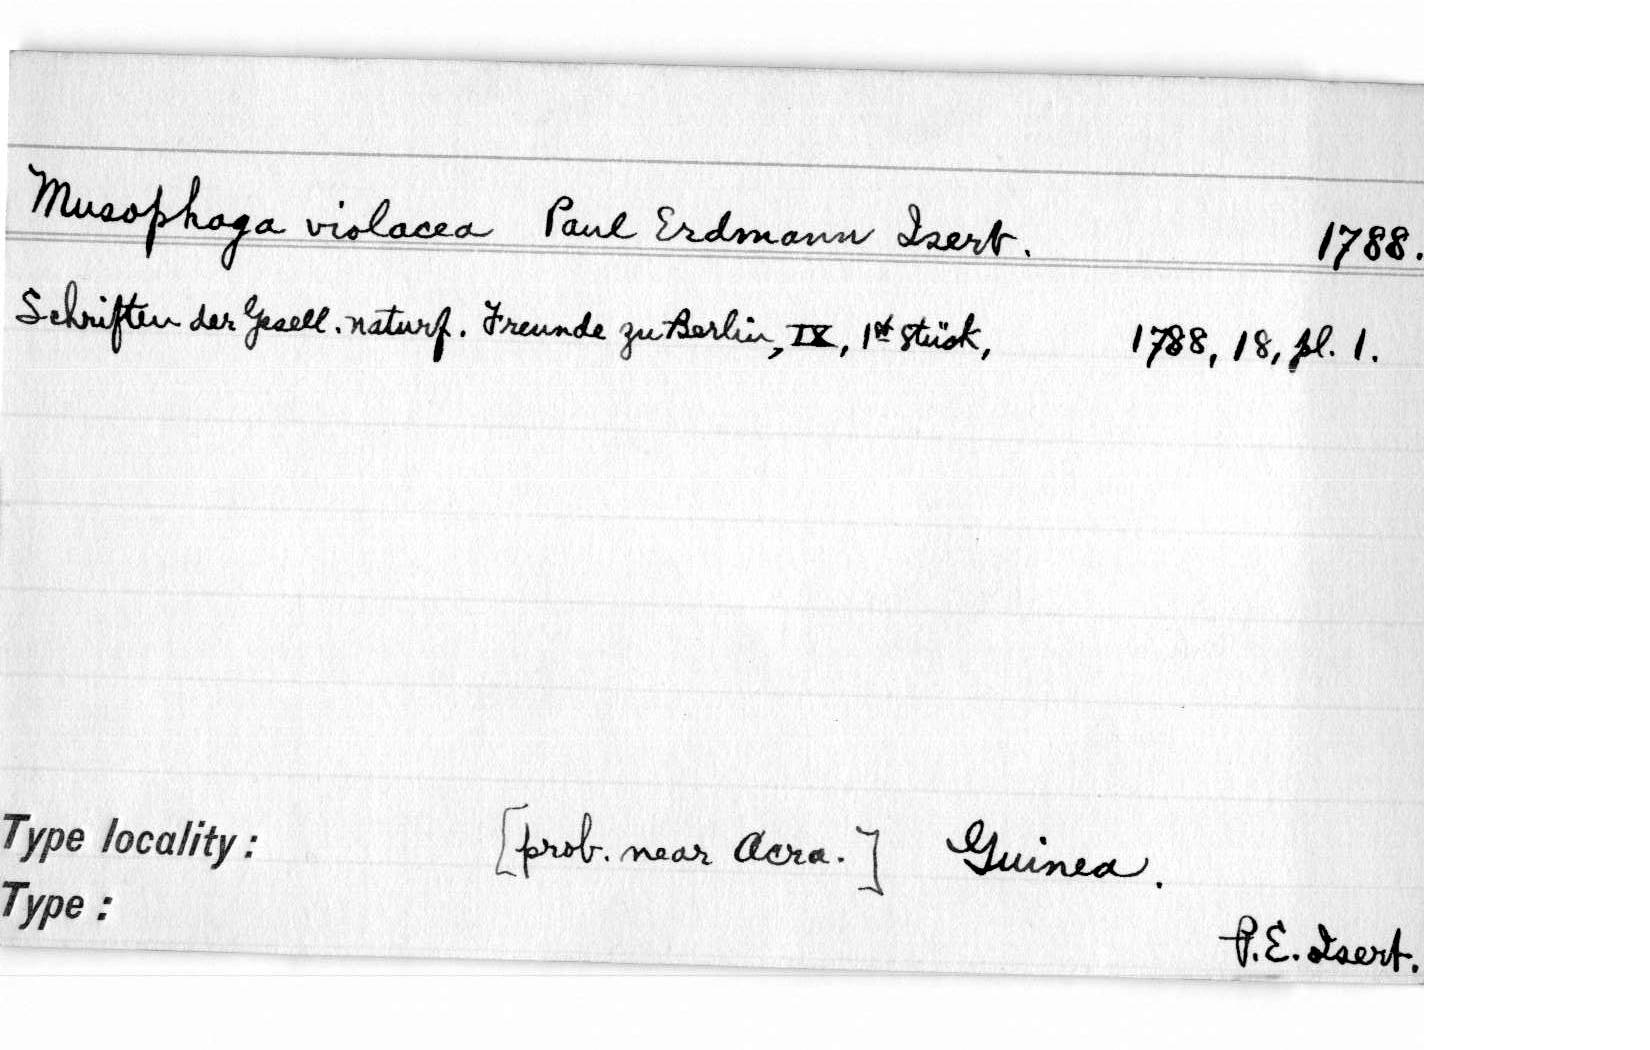 Musophaga violacea Paul Erdmann Isert. 1788.
Schriften der Gesell. naturf. Freunde zu Berlin, IX, 1st Stück, 1788, 18, pl. 1.
Type locality: [prob. near Acra.] Guinea.
Type:
P. E. Isert.